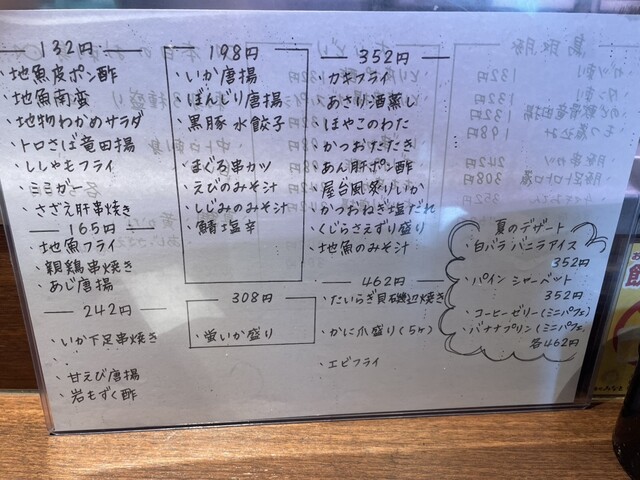 132円
・地魚皮ポン酢
・地魚南蛮
・地物わかめサラダ
・トロさば竜田揚
・ししゃもフライ
・ミミガー
・さざえ肝串焼き
165円
・地魚フライ
・親鶏串焼き
・あじ唐揚
242円
・いか下足串焼き
・甘えび唐揚
・岩もずく酢
198円
・いか唐揚
・ぼんじり唐揚
・黒豚水餃子
・まぐろ串カツ
・えびのみそ汁
・しじみのみそ汁
・鯖塩辛
308円
・蛍いか盛り
352円
・カキフライ
・あさり酒蒸し
・ほやこのわた
・かつおたたき
・あん肝ポン酢
・屋台風炙りいか
・かつおねぎ塩だれ
・くじらさえずり盛り
・地魚のみそ汁
462円
・たいらぎ貝磯辺焼き
・かに爪盛り(5ヶ)
・エビフライ
夏のデザート
・白バラバニラアイス
352円
・パインシャーベット
352円
・コーヒーゼリー(ミニパフェ)
・バナナプリン(ミニパフェ)
各462円